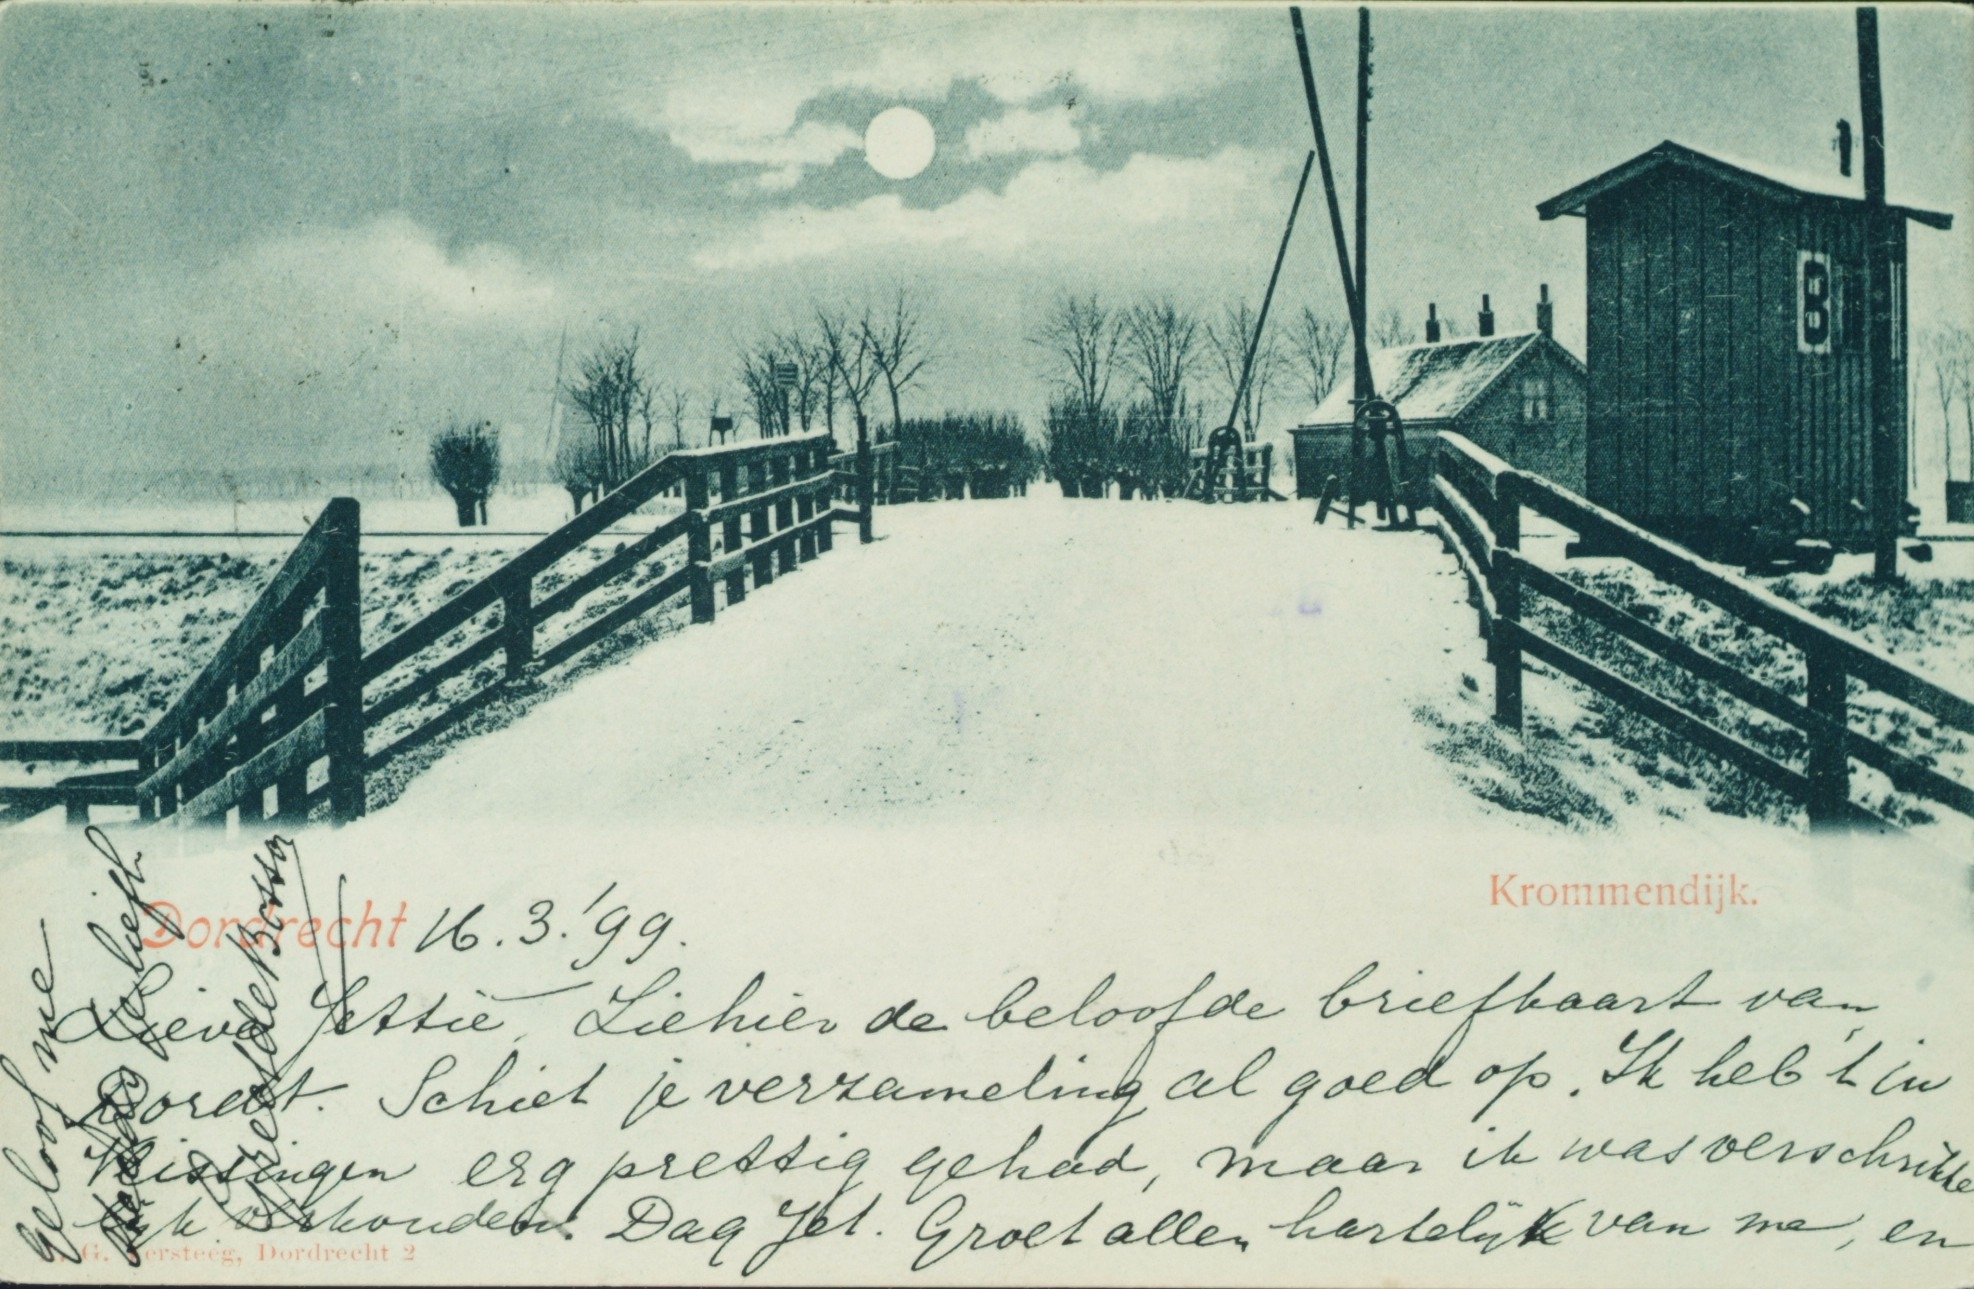 B
Krommendijk.
Dordrecht 16.3.'99.
Lieve Jettie, Ziehier de beloofde briefkaart van
Dordt. Schiet je verzameling al goed op. Ik heb 't in
Vlissingen erg prettig gehad, maar ik was verschrikke
lijk verkouden. Dag Jet. Groet allen hartelijk van me, en
geloof me
je liefh.
G. Versteeg, Dordrecht 2